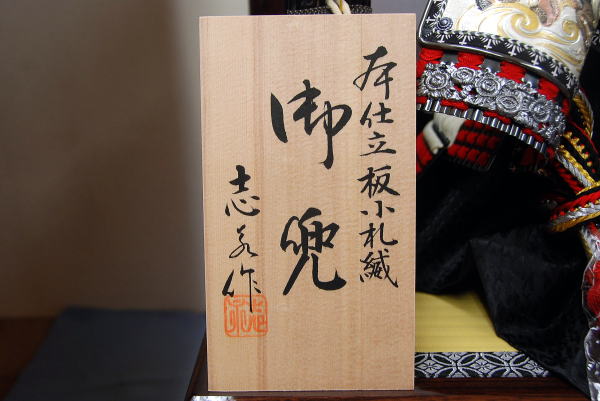 本仕立板小札縅
御兜
志友作